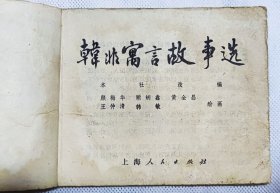 韓非寓言故事选
本社改编
颜梅华 熊炳鑫 黄全昌
王仲清 韩敏 绘画
上海人民出版社